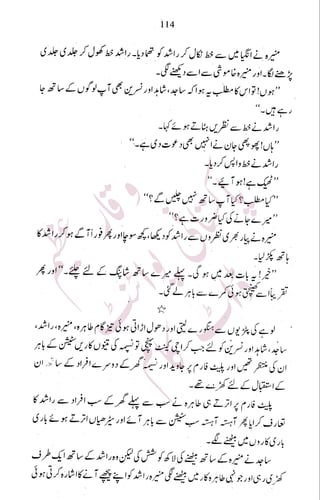 114
منیرہ نے انگیا میں سے خط نکال کر راشد کو تھما دیا۔ راشد خط کھول کر جلدی جلدی
پڑھنے لگا۔ اور منیرہ خاموشی سے اسے دیکھنے لگی۔
"ہوں! تو اس کا مطلب یہ ہوا کہ ساجد، شاہد اور نسرین بھی آپ لوگوں کے ساتھ جا
رہے ہیں۔"
راشد نے خط سے نظریں ہٹاتے ہوئے کہا۔
"ہاں! پھوپھی جان نے انہیں بھی دعوت دی ہے۔"
راشد نے خط واپس کر دیا۔
"ٹھیک ہے! ہو آئیے۔"
"کیا مطلب؟ کیا آپ ساتھ نہیں چلیں گے؟"
"میرے جانے کی کیا ضرورت ہے؟"
منیرہ نے پیار بھری نظروں سے راشد کو دیکھا، کچھ سوچا اور پھر فوراً آگے ہو کر راشد کا
ہاتھ پکڑ لیا۔
"خیر! یہ بات بعد میں ہو گی۔ پہلے میرے ساتھ شاپنگ کے لئے چلئے۔" اور پھر
تقریباً اسے کھینچتی ہوئی کمرے سے باہر لے گئی۔
☆
لوہے کی پٹریوں سے ہنگورے لیتی اور دھول اڑاتی ہوئی تیز گام طاہرہ، منیرہ، راشد،
ساجد، شاہد اور نسرین کو لئے جب کراچی کینٹ پہنچی تو نسیمہ کی تینوں کاریں سٹیشن کے باہر
ان کی منتظر تھیں اور پلیٹ فارم پر جاوید اور نسیمہ گھر کے دوسرے افراد کے ساتھ ان
کے استقبال کے لئے کھڑے تھے۔
پلیٹ فارم پر اترتے ہی طاہرہ نے سب سے پہلے گھر کے سب افراد سے راشد کا
تعارف کرایا پھر آہستہ آہستہ سب سٹیشن سے باہر آئے اور سیڑھیاں اترتے ہوئے باری
باری کاروں میں بیٹھنے لگے۔
ساجد نے منیرہ کے ساتھ بیٹھنے کی لاکھ کوشش کی لیکن وہ راشد کے ساتھ ایک طرف
کھڑی رہی اور جونہی طاہرہ کار میں بیٹھنے لگی منیرہ راشد کو اپنے پیچھے آنے کا اشارہ کرتی ہوئی